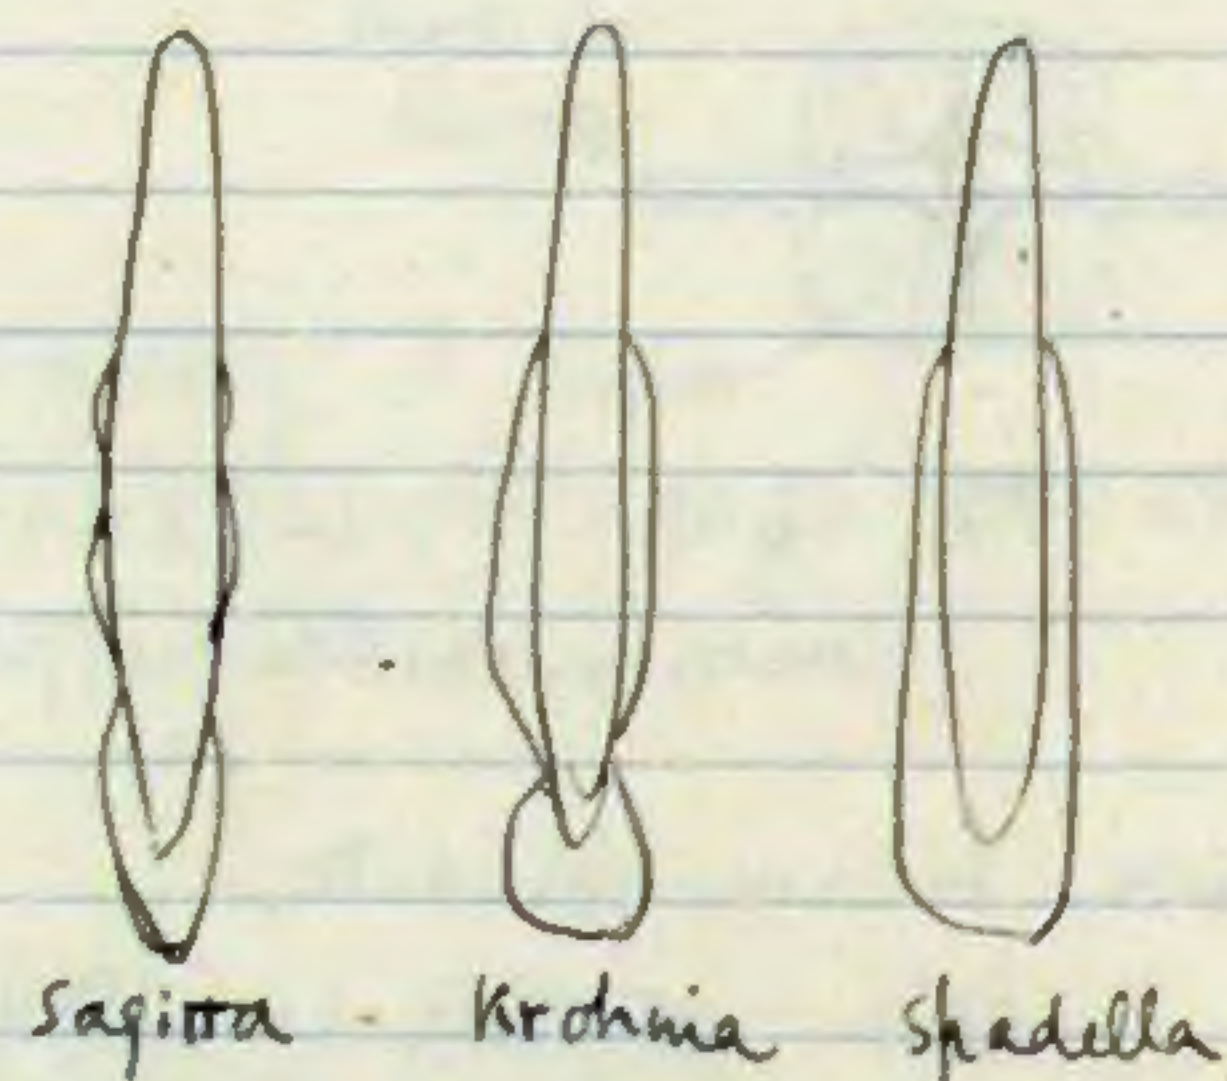 Sagitta - Krohnia Spadella